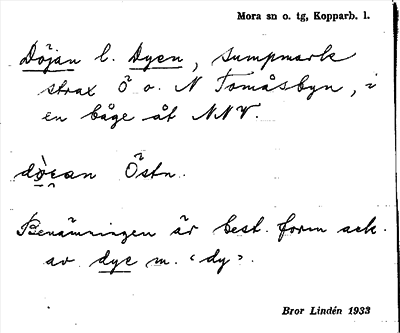 Mora sn o. tg, Kopparb. l.
Döján l. Dyen, sumpmark
strax Ö o. N Tomåsbyn, i
en båge åt NNV.
Östn.
Benämningen är best. form ack.
av dye m. "dy".
Bror Lindén 1933